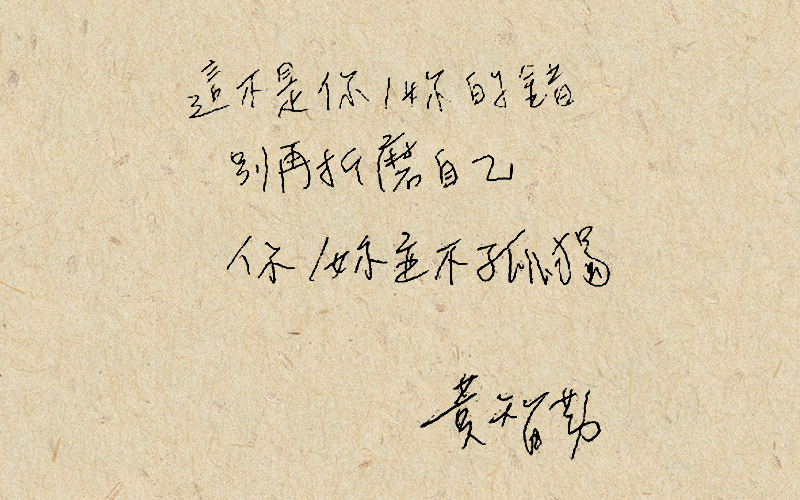 這不是你/妳的錯
別再折磨自己
你/妳並不孤獨
黃智勤